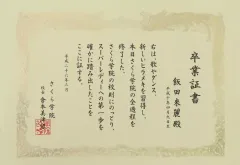 卒業証書
飯田來麗殿
右は、歌やダンス、
新しいヒラメキを習得し、
本日さくら学院の全過程を
終了しました。
さくら学院の校則にのっとり、
スーパーレディーへの第一歩を
確かに踏み出したことを
ここに証する。
さくら学院